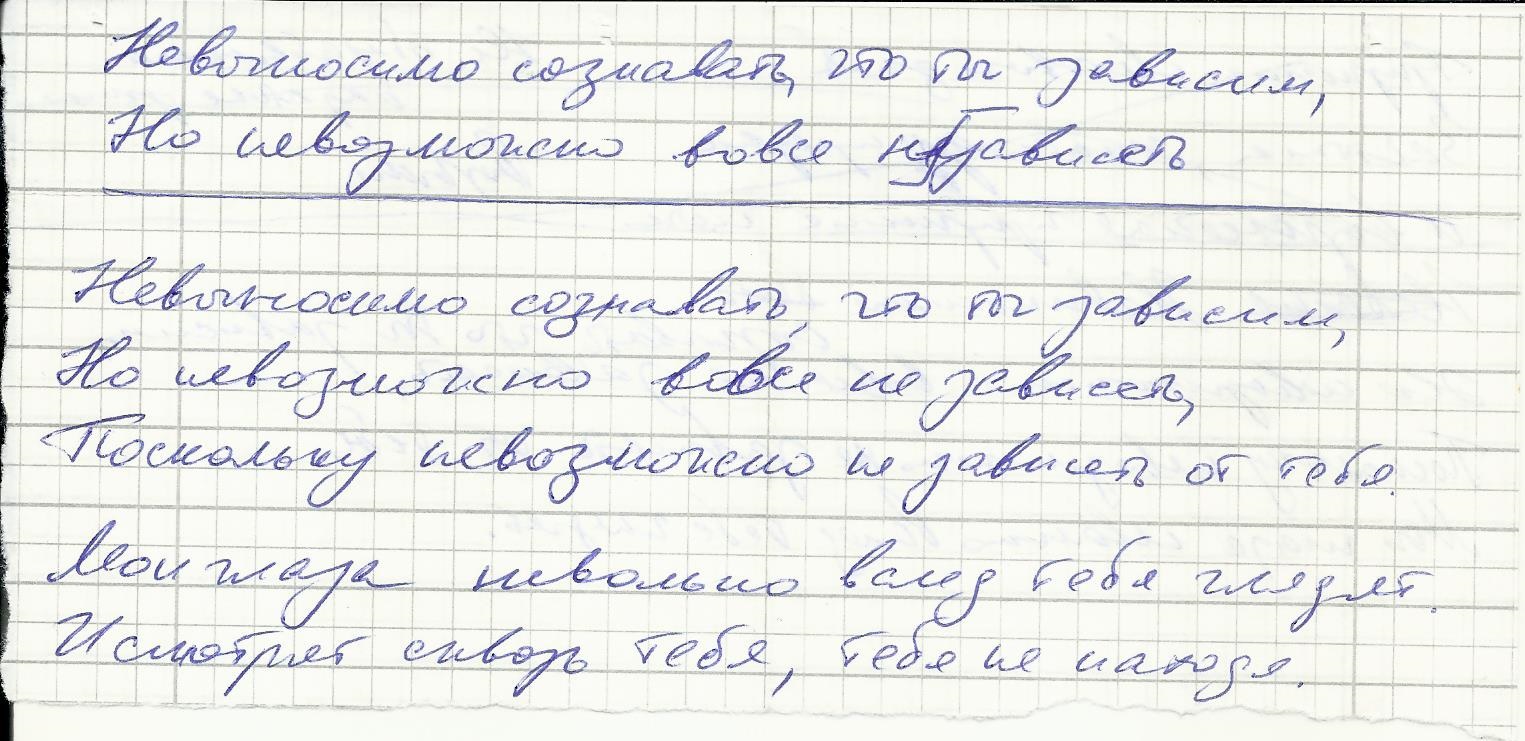 Невыносимо сознавать, что ты зависим,
Но невозможно вовсе не зависеть
Невыносимо сознавать, что ты зависим,
Но невозможно вовсе не зависеть,
Поскольку невозможно не зависеть от тебя.
Мои глаза невольно вслед тебя глядят.
И смотрят сквозь тебя, тебя не находя.